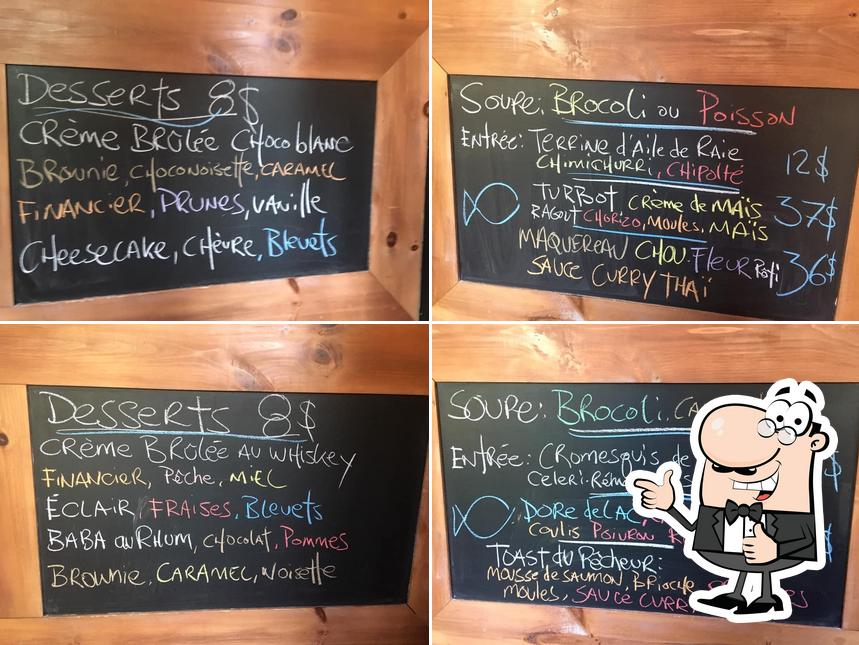 Desserts 8$
Crème Brûlée Choco blanc
Brownie, choconoisette, caramel
Financier, Prunes, vanille
Cheesecake, Chèvre, Bleuets
Soupe: Brocoli ou Poisson
Entrée: Terrine d'Aile de Raie
Chimichurri, Chipolté 12$
Turbot crème de maïs
Ragout Chorizo, Moules, Maïs 37$
Maquereau chou Fleur Rôti
Sauce Curry Thaï 36$
Desserts 8$
Crème Brûlée au whiskey
Financier, Pêche, miel
Éclair Fraises, Bleuets
Baba au Rhum, chocolat, Pommes
Brownie, Caramel, Noisette
Soupe: Brocoli,
Entrée: Cromesquis de
Celeri-Rému
Dore de Lac,
Coulis Poivron
Toast du Pêcheur:
mousse de saumon, Brioche
moules, Sauce Curry